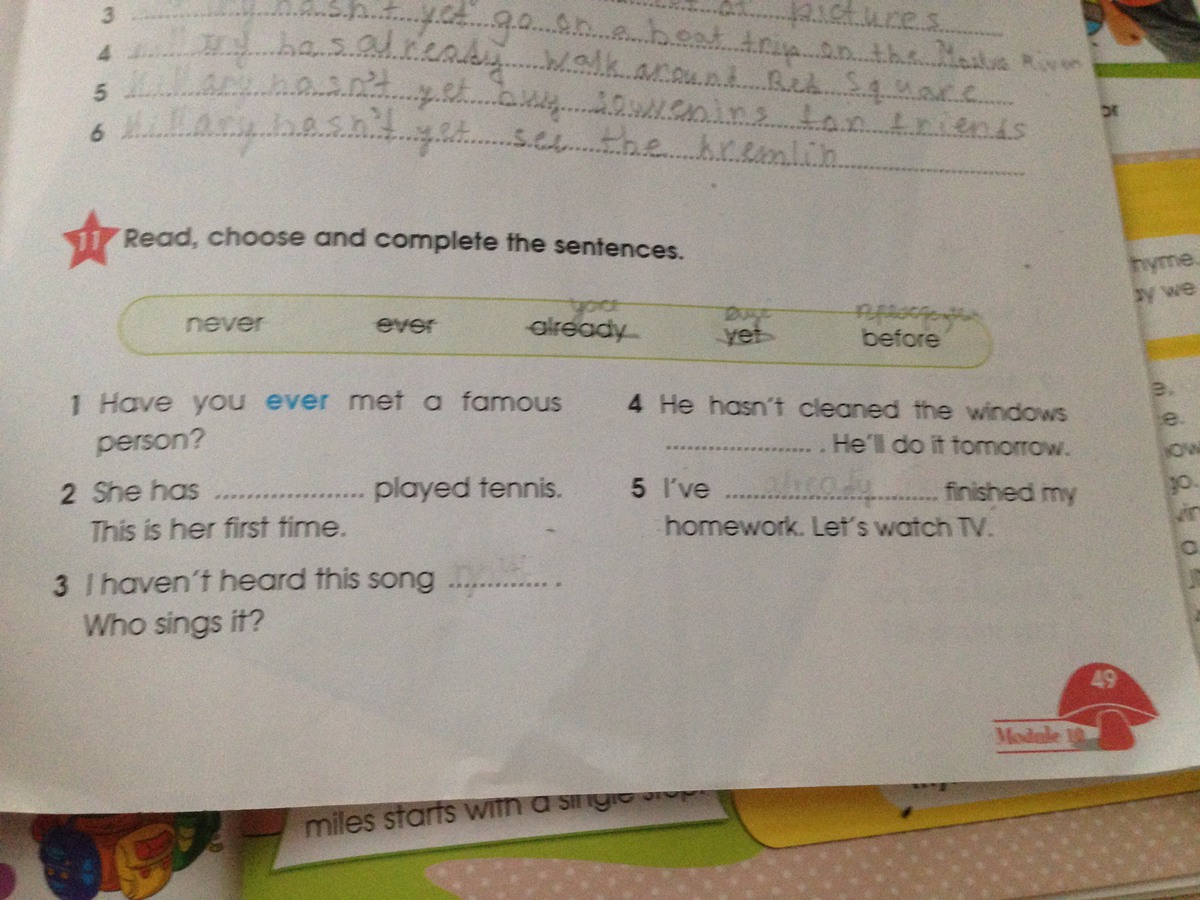 3 hasn't yet go on a boat trip on the River
pictures
4 has already walk around Red Square
5 Hillary hasn't yet buy souvenirs for friends
6 Hillary hasn't yet see the kremlin
11 Read, choose and complete the sentences.
never ever already yet before
1 Have you ever met a famous
person?
2 She has .................... played tennis.
This is her first time.
3 I haven't heard this song ............. .
Who sings it?
4 He hasn't cleaned the windows
.................... . He'll do it tomorrow.
5 I've already finished my
homework. Let's watch TV.
49
Module 10
miles starts with a single
hyme.
we